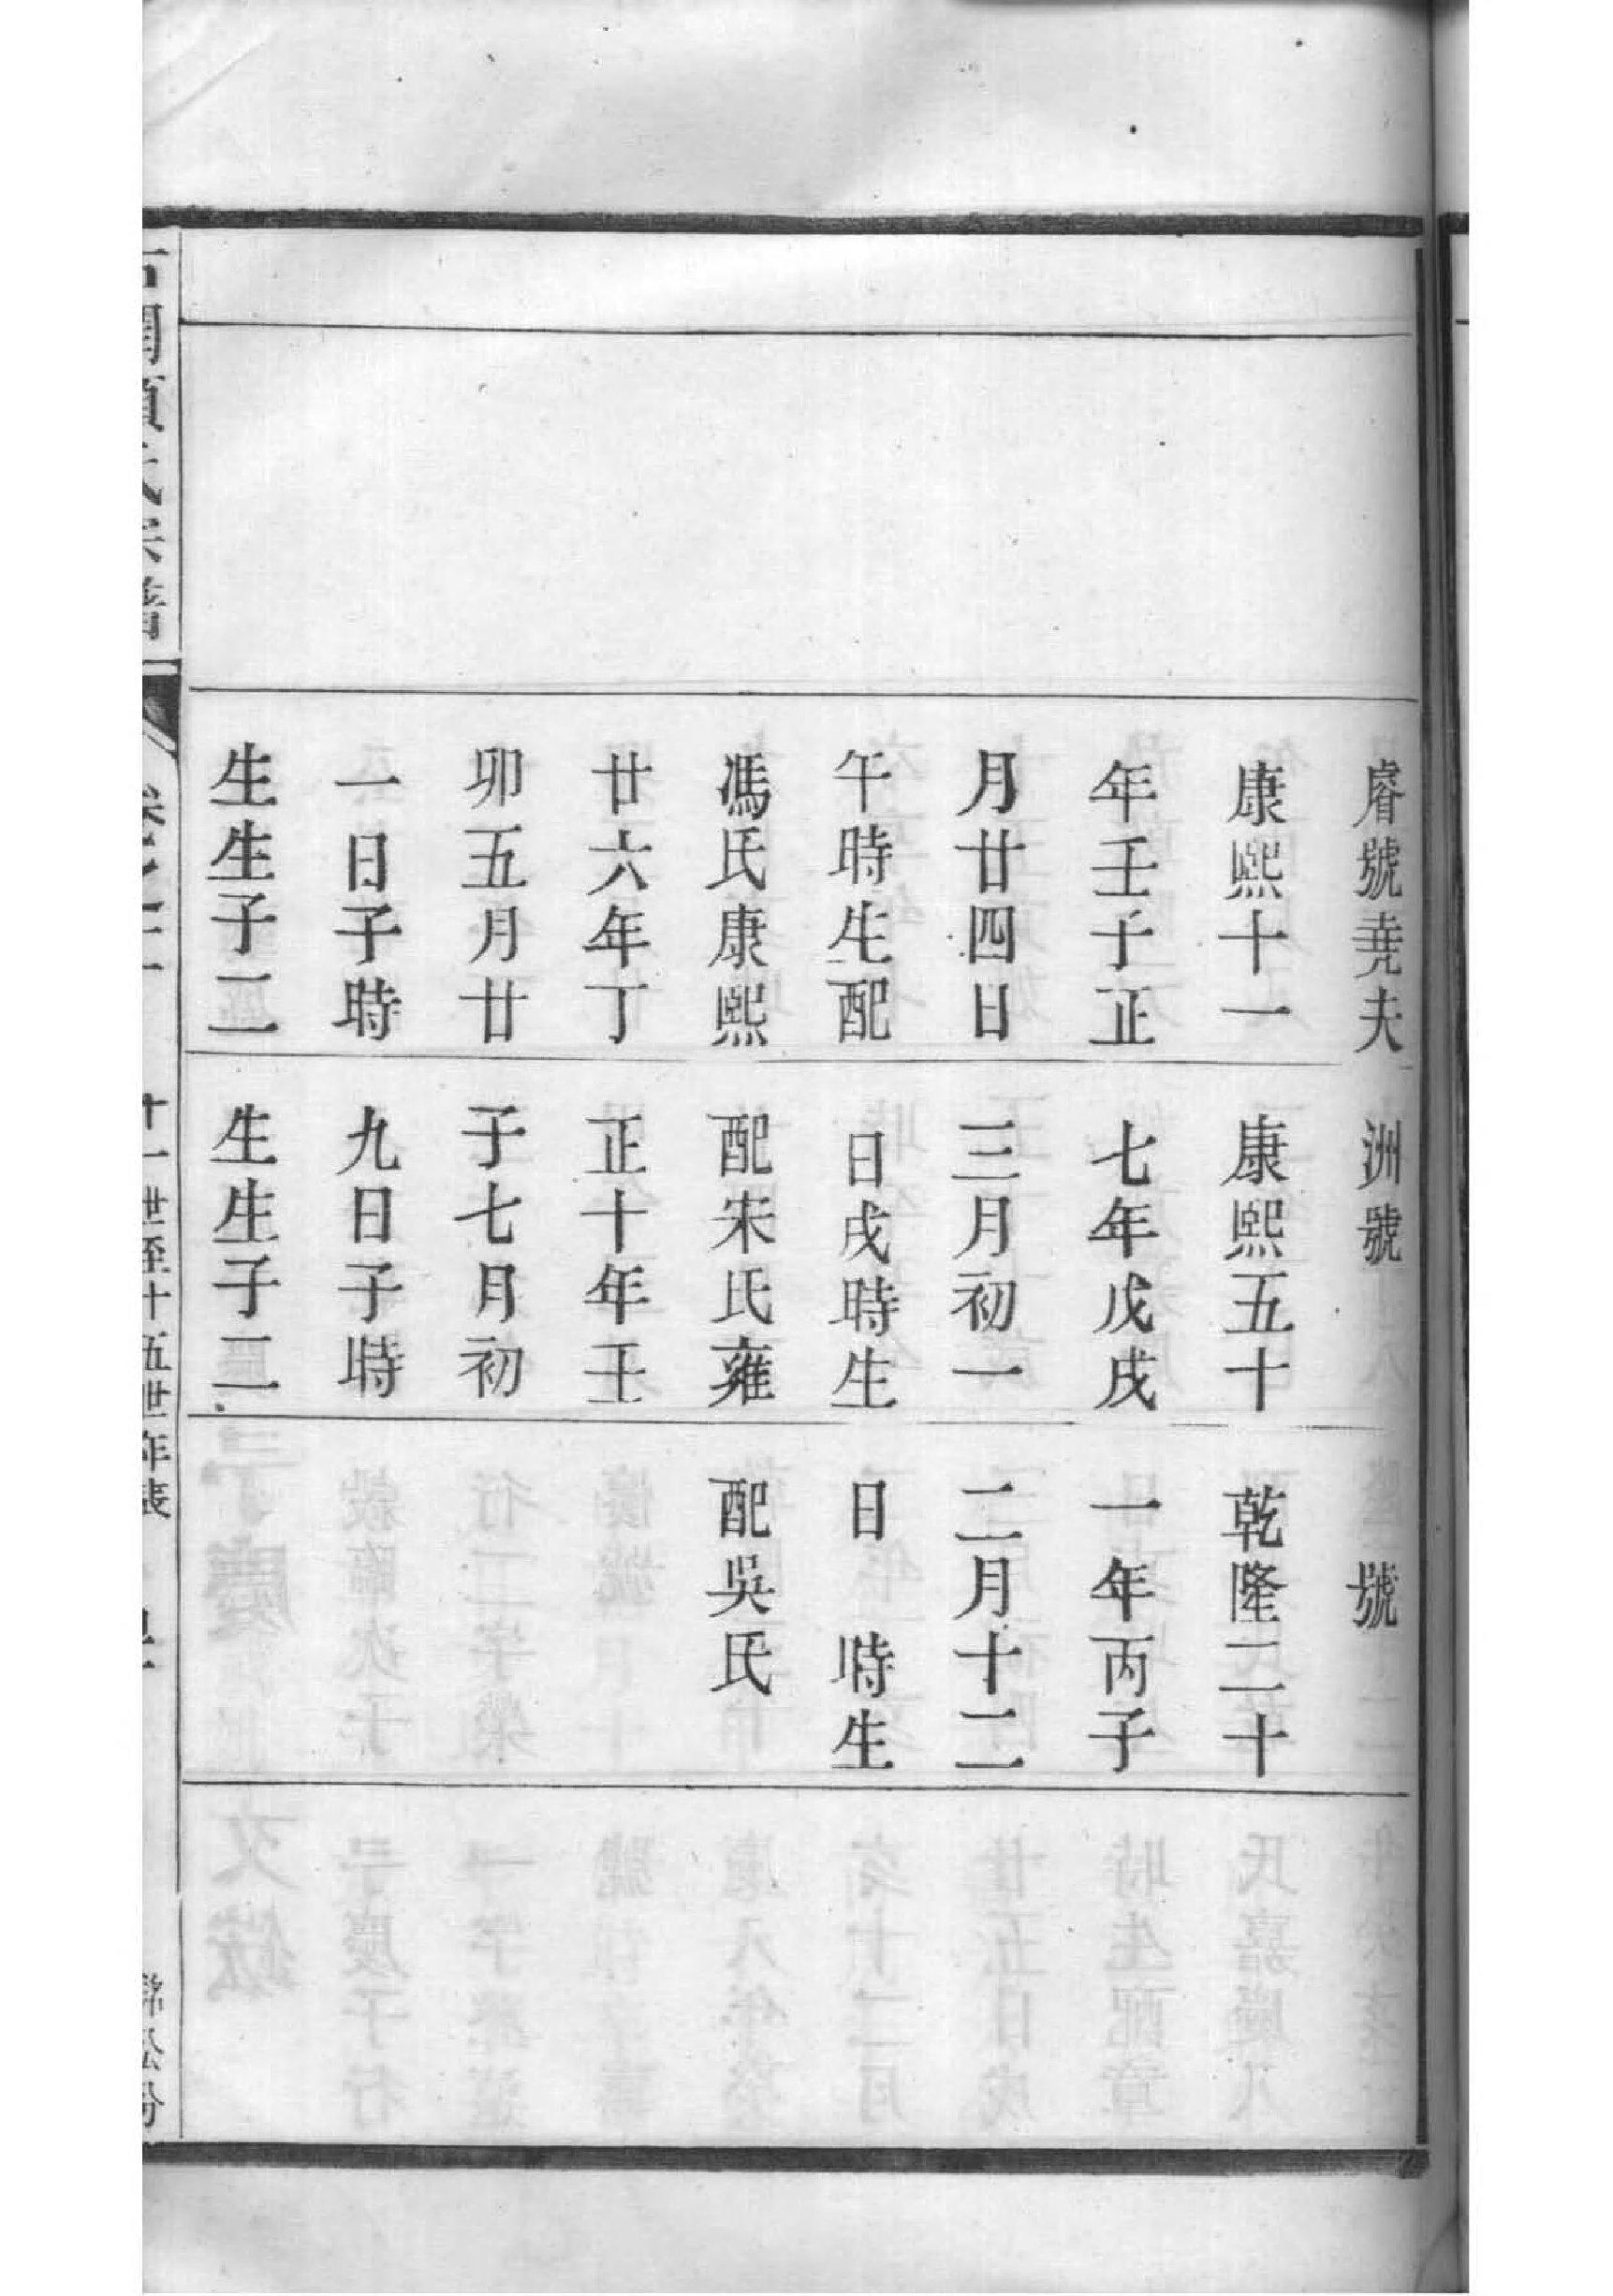 睿號堯夫
康熙十一
年壬子正
月廿四日
午時生配
馮氏康熙
廿六年丁
卯五月廿
一日子時
生生子二
洲號
康熙五十
七年戊戌
三月初一
日戌時生
配宋氏雍
正十年壬
子七月初
九日子時
生生子二
號
乾隆二十
一年丙子
二月十二
日 時生
配吳氏
十一世至十五世年表